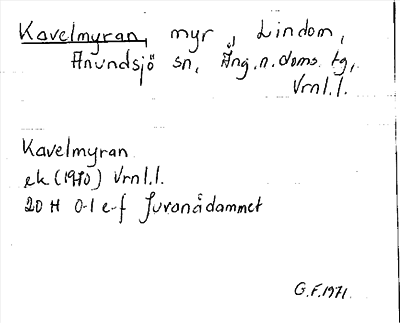 Kavelmyran, myr, Lindom,
Anundsjö sn, Ång.n.doms.tg,
Vrnl.l.
Kavelmyran
ek (1970) Vrnl.l.
20 H 0-1 e-f Juvanådammet
G.F. 1971.